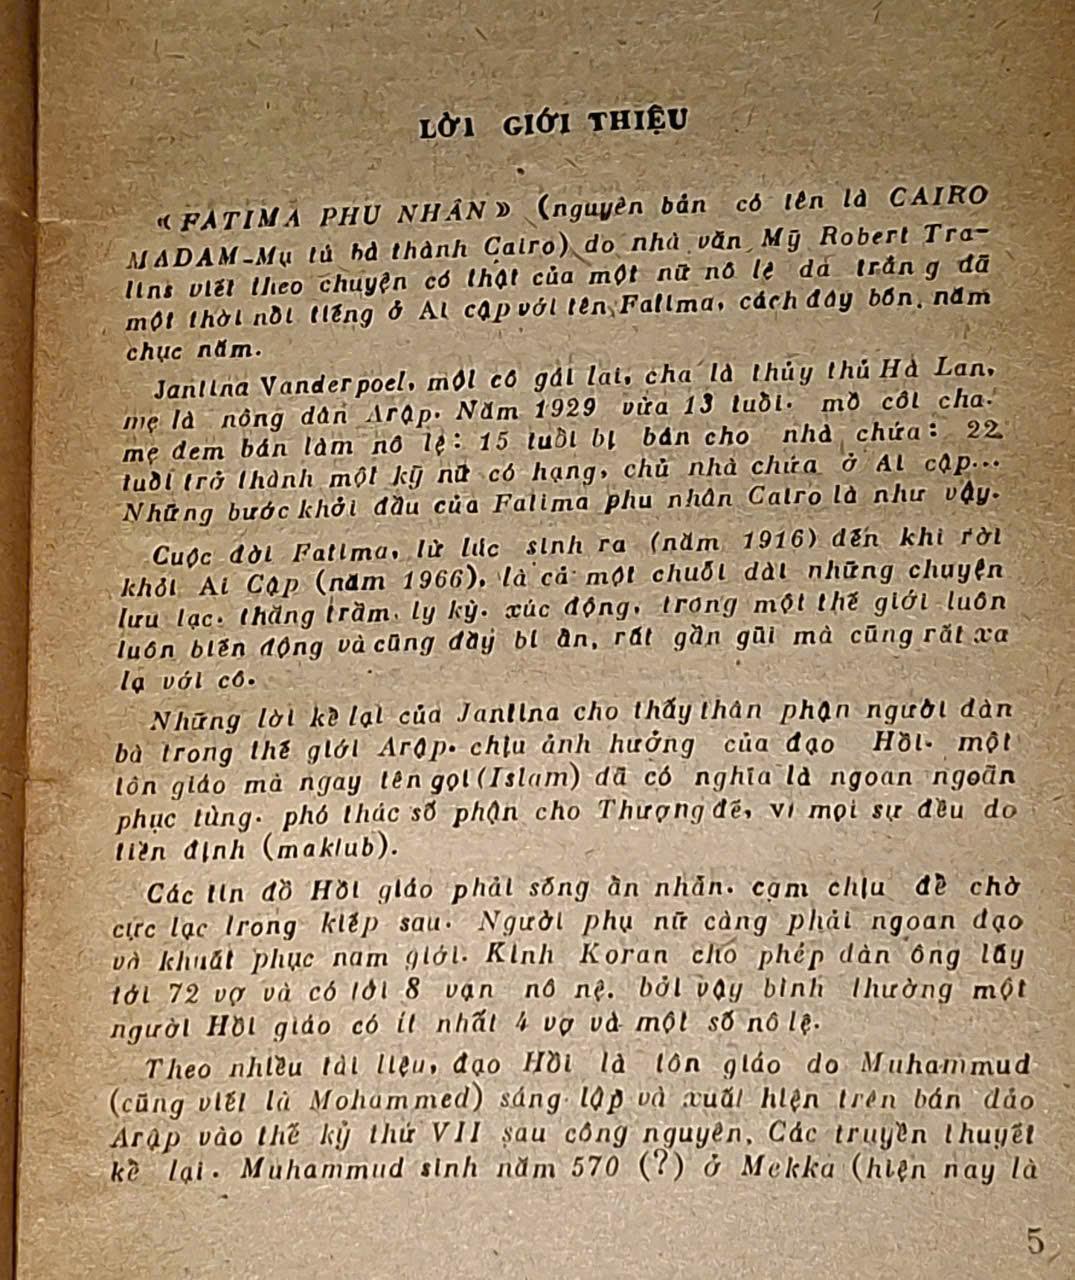 LỜI GIỚI THIỆU
« FATIMA PHU NHÂN » (nguyên bản có tên là CAIRO
MADAM-Mụ tú bà thành Cairo) do nhà văn Mỹ Robert Tra-
lins viết theo chuyện có thật của một nữ nô lệ da trắn g đã
một thời nổi tiếng ở Ai cập với tên Fatima, cách đây bốn, năm
chục năm.
Jantina Vanderpoel, một cô gái lai, cha là thủy thủ Hà Lan,
mẹ là nông dân Arập. Năm 1929 vừa 13 tuổi. mồ côi cha.
mẹ đem bán làm nô lệ: 15 tuổi bị bán cho nhà chứa: 22
tuổi trở thành một kỹ nữ có hạng, chủ nhà chứa ở Ai cập...
Những bước khởi đầu của Fatima phu nhân Cairo là như vậy.
Cuộc đời Fatima, từ lúc sinh ra (năm 1916) đến khi rời
khỏi Ai Cập (năm 1966), là cả một chuỗi dài những chuyện
lưu lạc. thăng trầm, ly kỳ. xúc động, trong một thế giới luôn
luôn biến động và cũng đầy bí ẩn, rất gần gũi mà cũng rất xa
lạ với cô.
Những lời kể lại của Jantina cho thấy thân phận người đàn
bà trong thế giới Arập. chịu ảnh hưởng của đạo Hồi. một
tôn giáo mà ngay tên gọi (Islam) đã có nghĩa là ngoan ngoãn
phục tùng. phó thác số phận cho Thượng đế, vì mọi sự đều do
tiền định (maktub).
Các tín đồ Hồi giáo phải sống ẩn nhẫn. cam chịu để chờ
cực lạc trong kiếp sau. Người phụ nữ càng phải ngoan đạo
và khuất phục nam giới. Kinh Koran cho phép đàn ông lấy
tới 72 vợ và có tới 8 vạn nô nệ, bởi vậy bình thường một
người Hồi giáo có ít nhất 4 vợ và một số nô lệ.
Theo nhiều tài liệu, đạo Hồi là tôn giáo do Muhammud
(cũng viết là Mohammed) sáng lập và xuất hiện trên bán đảo
Arập vào thế kỷ thứ VII sau công nguyên. Các truyền thuyết
kể lại. Muhammud sinh năm 570 (?) ở Mekka (hiện nay là
5